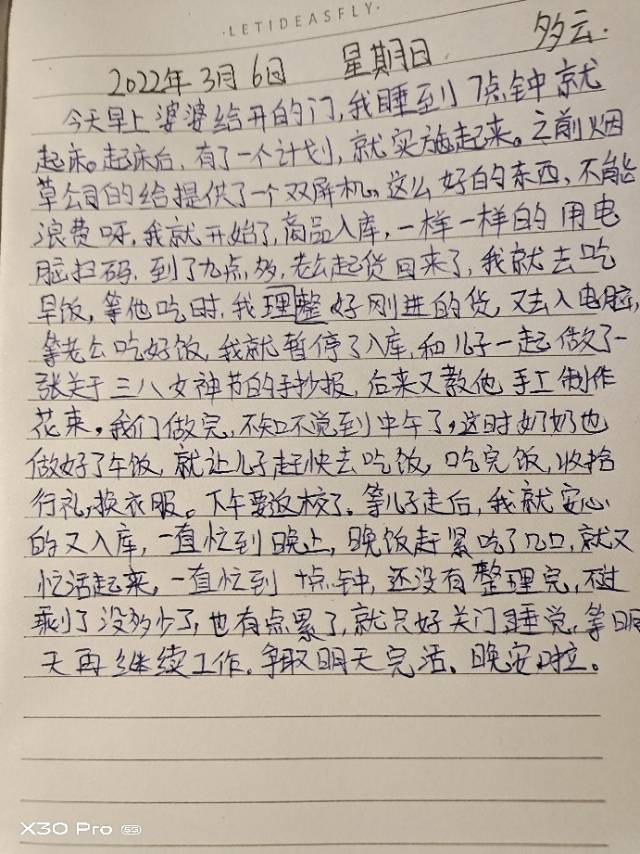 ·LETIDEASFLY·
2022年3月6日 星期日 多云.
今天早上婆婆给开的门,我睡到7点钟就
起床。起床后,有了一个计划,就实施起来。之前烟
草公司的给提供了一个双屏机。这么好的东西,不能
浪费呀,我就开始了,商品入库,一样一样的用电
脑扫码.到了九点多,老公起货回来了,我就去吃
早饭,等他吃时,我理整好刚进的货,又去入电脑,
等老公吃好饭,我就暂停了入库,和儿子一起做了一
张关于三八女神节的手抄报,后来又教他手工制作
花束,我们做完,不知不觉到中午了,这时奶奶也
做好了午饭,就让儿子赶快去吃饭,吃完饭,收拾
行礼,换衣服。下午要返校了。等儿子走后,我就安心
的又入库,一直忙到晚上,晚饭赶紧吃了几口,就又
忙活起来,一直忙到十点钟,还没有整理完,不过
剩了没多少了,也有点累了,就只好关门睡觉,等明
天再继续工作.争取明天完活。晚安啦。
X30 Pro 5G